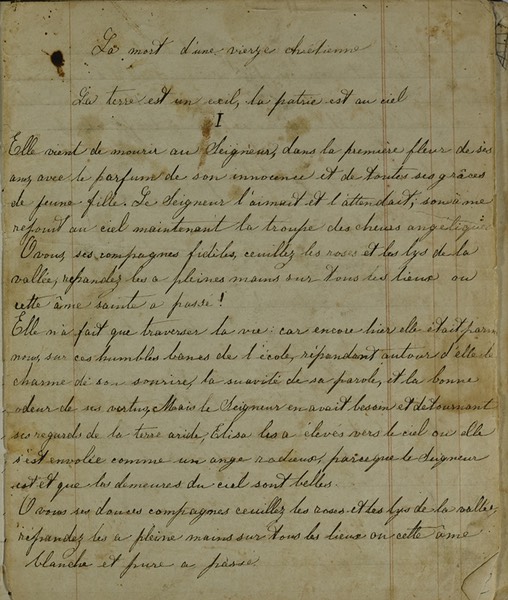 La mort d'une vierge chrétienne
La terre est un exil, la patrie est au ciel
I
Elle vient de mourir au Seigneur, dans la première fleur de ses
ans, avec le parfum de son innocence et de toutes ses grâces
de jeune fille. Le Seigneur l'aimait et l'attendait; son âme
rejouit au ciel maintenant la troupe des chœurs angéliques
O vous, ses compagnes fidèles, ceuillez les roses et les lys de la
vallée, repandez les a pleines mains sur tous les lieux ou
cette âme sainte a passé!
Elle n'a fait que traverser la vie: car encore hier elle était parmi
nous, sur ces humbles bancs de l'école, répandant autour d'elle le
charme de son sourire, la suavité de sa parole, et la bonne
odeur de ses vertus. Mais le Seigneur en avait besoin et détournant
ses regards de la terre aride, Elisa les a élevés vers le ciel ou elle
s'est envolée comme un ange radieux, parce que le Seigneur
est et que les demeures du ciel sont belles.
O vous ses douces compagnes ceuillez les roses et les lys de la vallée,
répandez les a pleine mains sur tous les lieux ou cette âme
blanche et pure a passé.